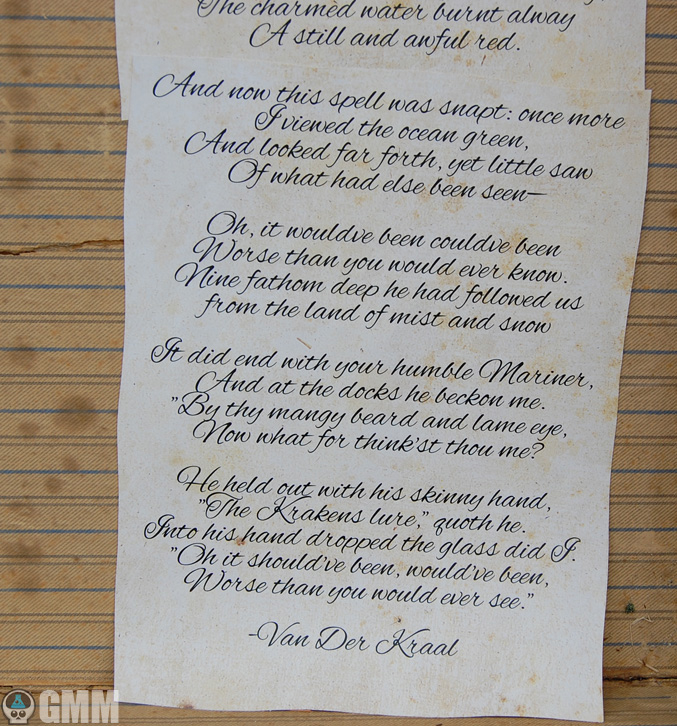 The charmed water burnt alway
A still and awful red.
And now this spell was snapt: once more
I viewed the ocean green,
And looked far forth, yet little saw
Of what had else been seen—
Oh, it wouldve been couldve been
Worse than you would ever know.
Nine fathom deep he had followed us
from the land of mist and snow
It did end with your humble Mariner,
And at the docks he beckon me.
"By thy mangy beard and lame eye,
Now what for think'st thou me?
He held out with his skinny hand,
"The Krakens lure," quoth he.
Into his hand dropped the glass did I.
"Oh it should've been, would've been,
Worse than you would ever see."
-Van Der Kraal
GMM